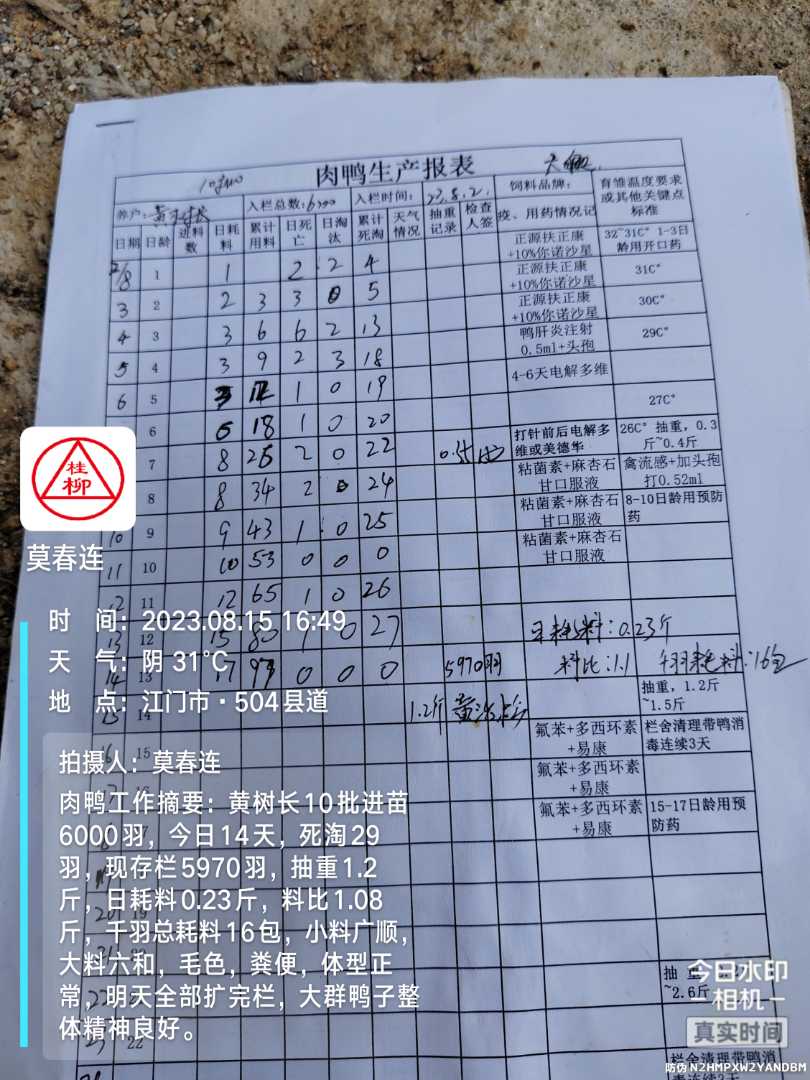 肉鸭生产报表
养户:
入栏总数:6000
入栏时间: 23.8.2.
饲料品牌:
育雏温度要求或其他关键点标准
日期 日龄 进料数 日耗料 累计用料 日死亡 日淘汰 累计死淘 天气情况 抽重记录 检查人签 疫、用药情况记
2/8 1 1 2 2 4 正源扶正康+10%你诺沙星 32~31C° 1-3日龄用开口药
3 2 2 3 3 0 5 正源扶正康+10%你诺沙星 31C°
4 3 3 6 6 2 13 正源扶正康+10%你诺沙星 30C°
5 4 3 9 2 3 18 鸭肝炎注射0.5ml+头孢 29C°
6 5 3 12 1 0 19 4-6天电解多维
6 6 18 1 0 20 27C°
7 8 26 2 0 22 打针前后电解多维或美德华 26C° 抽重，0.3斤~0.4斤
8 8 34 2 0 24 粘菌素+麻杏石甘口服液 禽流感+加头孢打0.52ml
10 9 9 43 1 0 25 粘菌素+麻杏石甘口服液 8-10日龄用预防药
11 10 10 53 0 0 0 粘菌素+麻杏石甘口服液
12 11 12 65 1 0 26
13 12 15 80 1 0 27 日耗料:0.23斤
14 13 17 97 0 0 0 5970羽 料比:1.1 千羽耗料:16包
15 14 1.2斤 抽重，1.2斤~1.5斤
16 15 氟苯+多西环素+易康 栏舍清理带鸭消毒连续3天
氟苯+多西环素+易康
氟苯+多西环素+易康 15-17日龄用预防药
20 19
~2.6斤
22
栏舍清理带鸭消毒连续3天
桂柳
莫春连
时 间: 2023.08.15 16:49
天 气: 阴 31℃
地 点: 江门市·504县道
拍摄人: 莫春连
肉鸭工作摘要: 黄树长10批进苗
6000羽, 今日14天, 死淘29
羽, 现存栏5970羽, 抽重1.2
斤, 日耗料0.23斤, 料比1.08
斤, 千羽总耗料16包, 小料广顺,
大料六和, 毛色, 粪便, 体型正
常, 明天全部扩完栏, 大群鸭子整
体精神良好。
今日水印
相机
真实时间
防伪 N2HMPXW2YANDBM